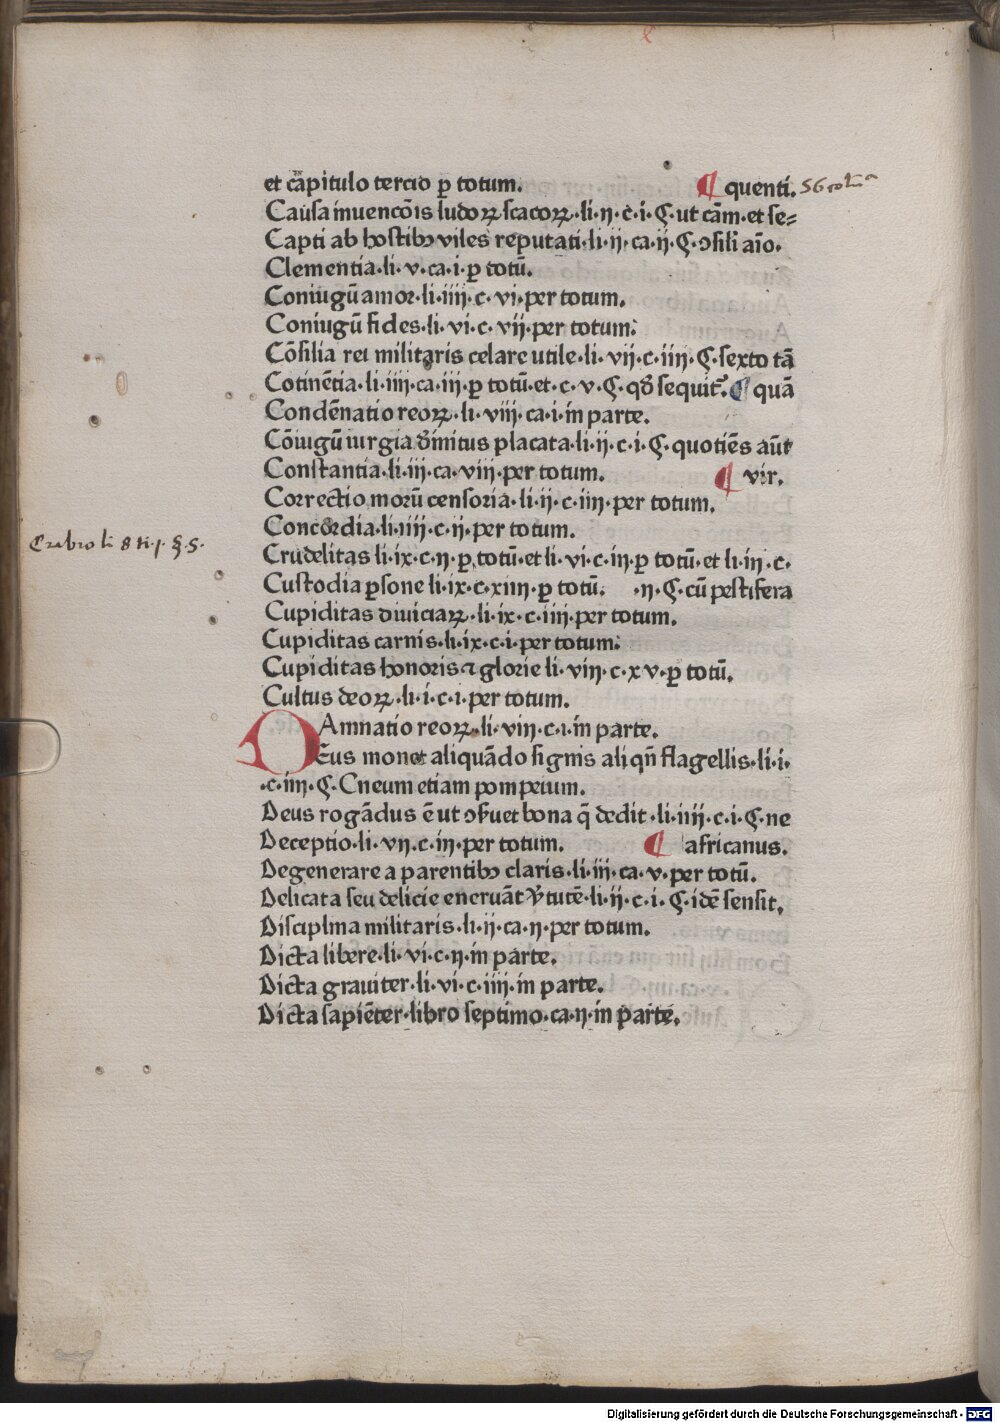 et cāpitulo tercio ꝑ totum. ¶ quenti. 56 colūa
Causa inuencōis ludoꝝ scacoꝝ·li·ij·c·i·Ç·ut cām·et se⸗
Capti ab hostibꝫ viles reputati·li·ij·ca·ij·Ç·ↄsili aīo.
Clementia·li·v·ca·i·ꝑ totū.
Coniugū amor·li·iiij·c·vi·per totum.
Coniugū fides·li·vi·c·vij·per totum:
Cōsilia rei militaris celare utile·li·vij·c·iiij·Ç·sexto tā
Cotinētia·li·iiij·ca·iij·ꝑ totū·et·c·v·Ç·qđ sequit᷑. ¶ quā
Condēnatio reoꝝ·li·viij·ca·i·in parte.
Cōiugū iurgia diuinitus placata·li·ij·c·i·Ç·quotiēs aūt
Constantia·li·iij·ca·viij·per totum. ¶ vir.
Correctio morū censoria·li·ij·c·iiij·per totum.
Concordia·li·iiij·c·ij·per totum.
Crabro li 8 ti·j·§·5·
Crudelitas li·ix·c·ij·ꝑ totū·et li·vi·c·iij·ꝑ totū·et li·iij·c·
Custodia ꝑsone li·ix·c·xiiij·ꝑ totū. ·ij·Ç·cū pestifera
Cupiditas diuiciaꝝ·li·ix·c·iiij·per totum.
Cupiditas carnis·li·ix·c·i·per totum:
Cupiditas honoris ⁊ glorie li·viij·c·xv·ꝑ totū.
Cultus deoꝝ·li·i·c·i·per totum.
DAmnatio reoꝝ·li·viij·c·i·in parte.
Eus monet aliquādo signis aliqn̄ flagellis·li·i·
·c·iiij·Ç·Cneum etiam pompeium.
Deus rogādus ē ut ↄẜuet bona q̄ dedit·li·iiij·c·i·Ç·ne
Deceptio·li·vij·c·iij·per totum. ¶ africanus.
Degenerare a parentibꝫ claris·li·iij·ca·v·per totū.
Delicata seu delicie eneruāt v̾tutē·li·ij·c·i·Ç·idē sensit,
Disciplina militaris·li·ij·ca·ij·per totum.
Dicta libere·li·vi·c·ij·in parte.
Dicta grauiter·li·vi·c·iiij·in parte.
Dicta sapiēter·libro septimo·ca·ij·in parte.
Digitalisierung gefördert durch die Deutsche Forschungsgemeinschaft - DFG